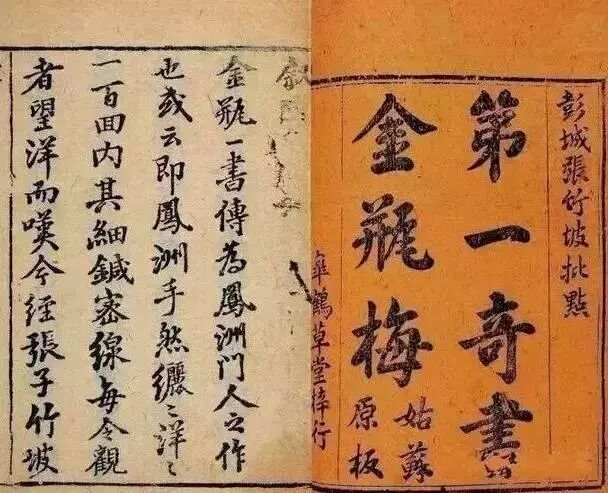 彭城張竹坡批點
第一奇書
金瓶梅
姑蘇
原板
皐鶴草堂梓行
金瓶一書傳為鳳洲門人之作
也或云即鳳洲手然纚〻洋〻
一百回内其細鍼密線每令觀
者望洋而嘆今經張子竹坡